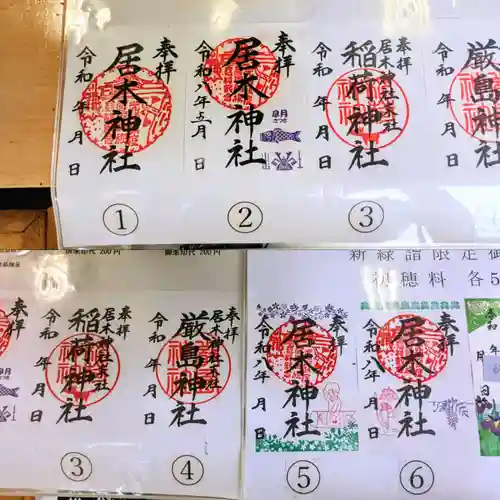 奉拝
居木神社
令和 年 月 日
①
奉拝
居木神社
令和八年五月 日
皐月
さつき
②
奉拝
居木神社末社
稲荷神社
令和 年 月 日
③
厳島神社
令和 年 月 日
奉拝
居木神社末社
稲荷神社
令和 年 月 日
③
奉拝
居木神社末社
厳島神社
令和 年 月 日
④
新緑詣限定御
初穂料 各5
奉拝
居木神社
令和八年 月 日
⑤
奉拝
居木神社
令和八年 月 日
⑥